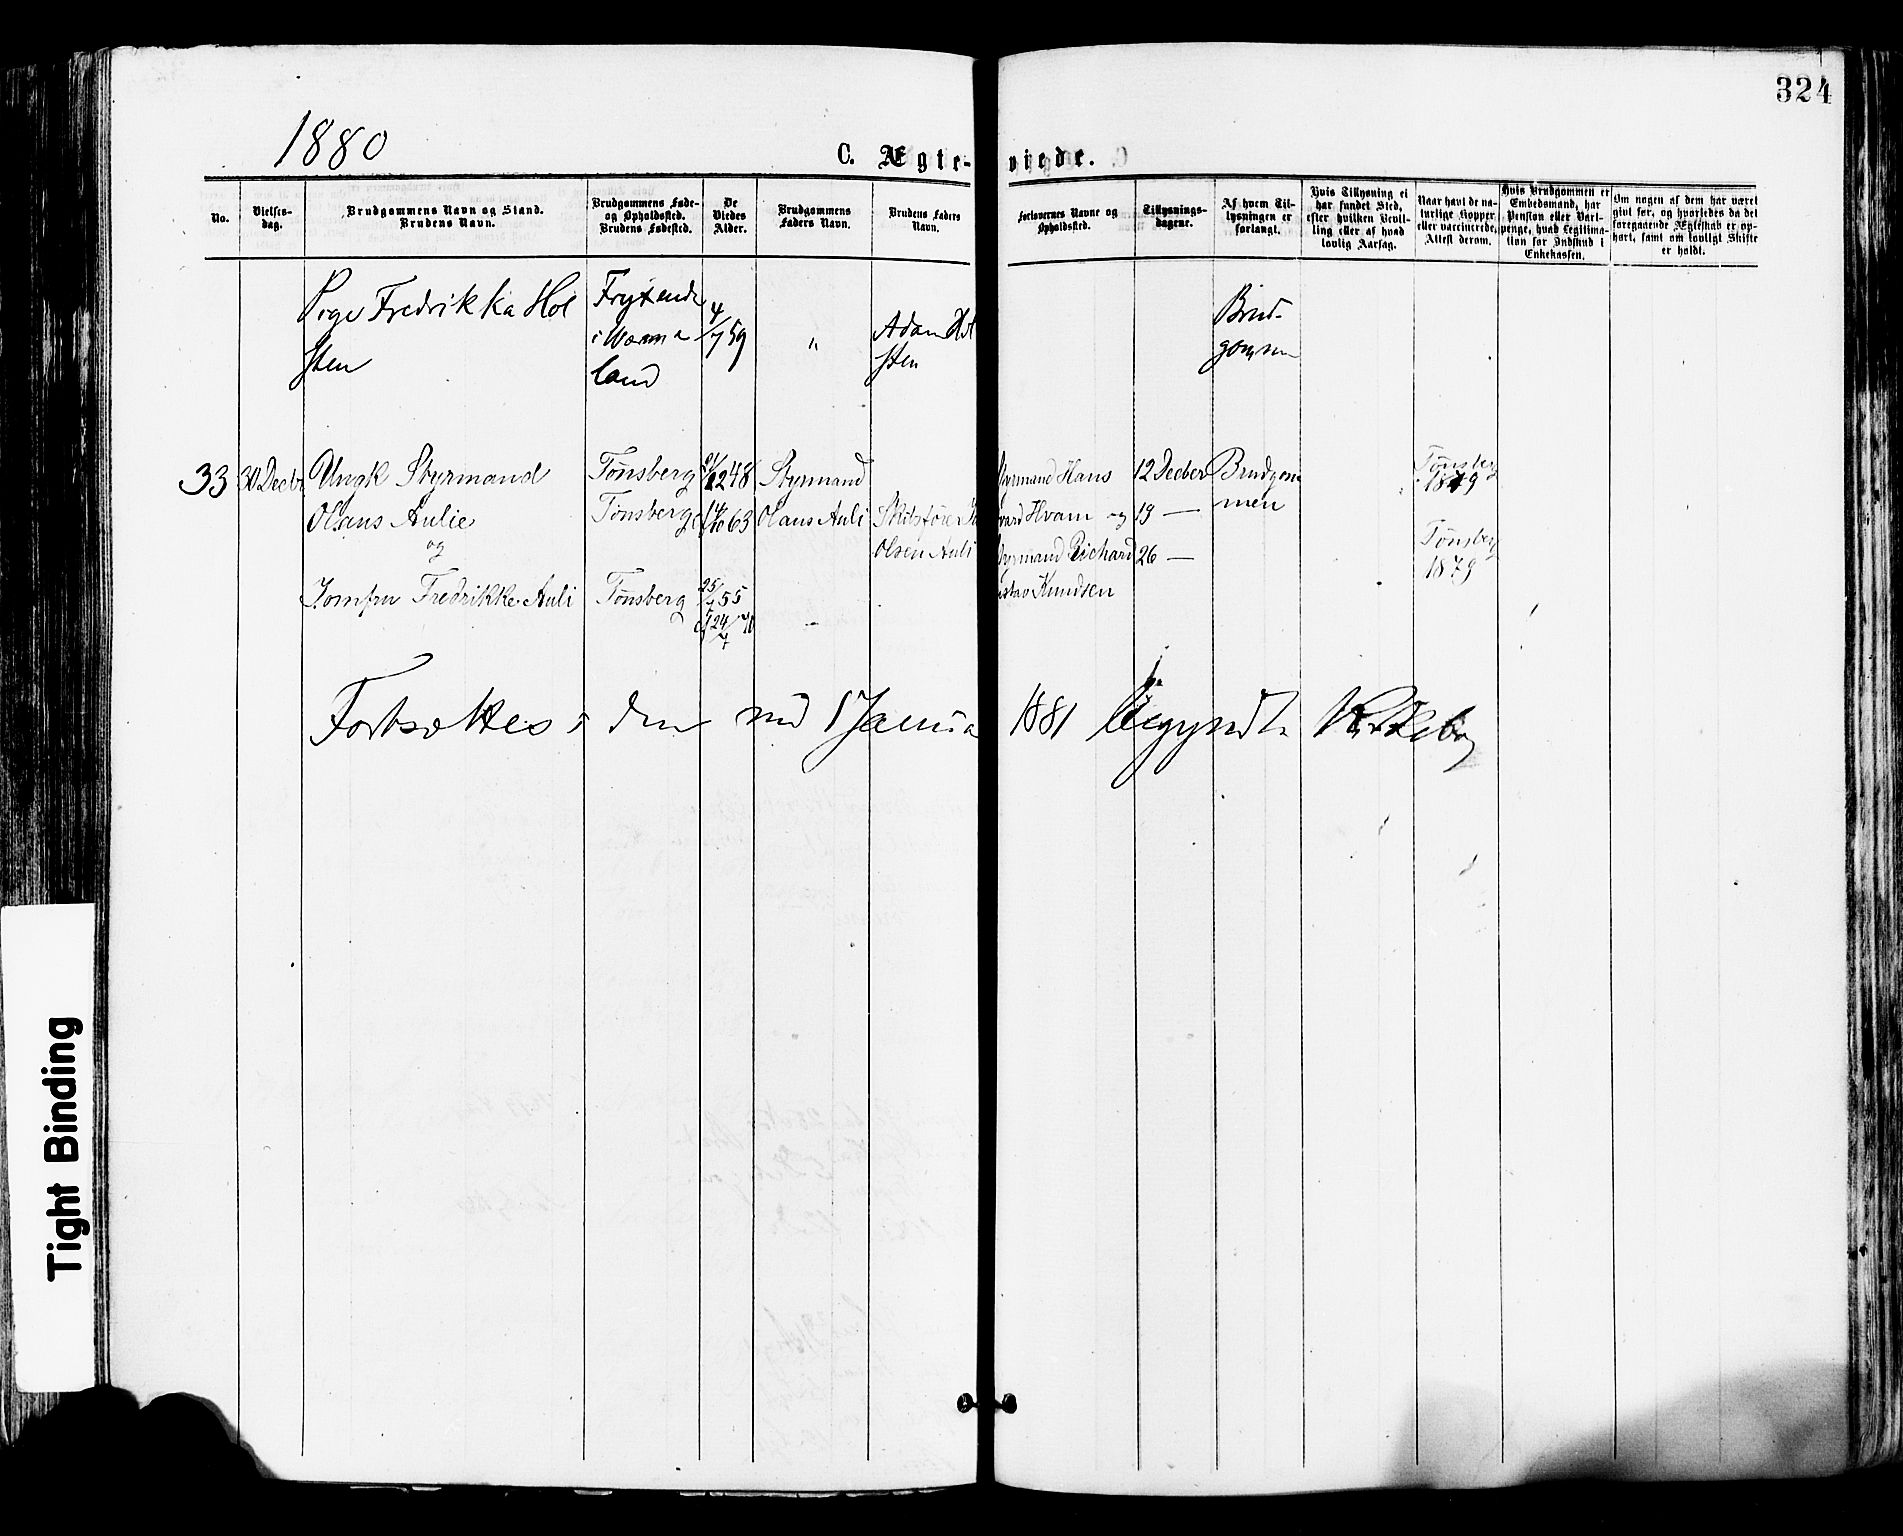 324
1880
C. Ægte-
viede.
No.
Vielses-
dag.
Brudgommens Navn og Stand.
Brudens Navn.
Brudgommens Føde-
og Opholdssted.
Brudens Fødested.
De
Viedes
Alder.
Brudgommens
Faders Navn.
Brudens Faders
Navn.
Forlovernes Navne og
Opholdssted.
Tillysnings-
dagene.
Af hvem Til-
lysningen er
forlangt.
Hvis Tillysning ei
har fundet Sted,
efter hvilken Bevil-
ling eller af hvad
lovlig Aarsag.
Naar havt de na-
turlige Kopper
eller vaccinerede,
Attest derom.
Hvis Brudgommen er
Embedsmand, har
Pension eller Vart-
penge, hvad Legitima-
tion for Indskud i
Enkekassen.
Om nogen af dem har været
givt før, og hvorledes da det
foregaaende Ægteskab er op-
hørt, samt om lovligt Skifte
er holdt.
Pige Fredrikka Hol
sten
land
4/7 59
"
Adam Hol
sten
Brud-
gommen
33
30 Decbr
Ungk Styrmand
Olaus Aulie
og
Jomfru Fredrikke Auli
Tønsberg
Tønsberg
Tønsberg
48
63
25/4 55
24/7 70
Styrmand
Olaus Auli
Olsen Auli
Styrmand Hans
Hvam og
Styrmand Richard
Gustav Knudsen
12 Decber
19 —
26 —
Brudgom
men
Tønsberg
1849
Tønsberg
1879
Fortsættes i den med 1 Janua 1881 begyndte Kirkebog
Tight Binding